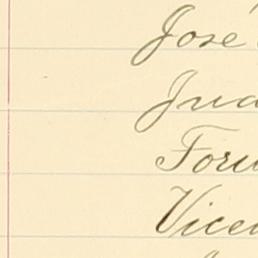 José
Jua
Foru
Vicen